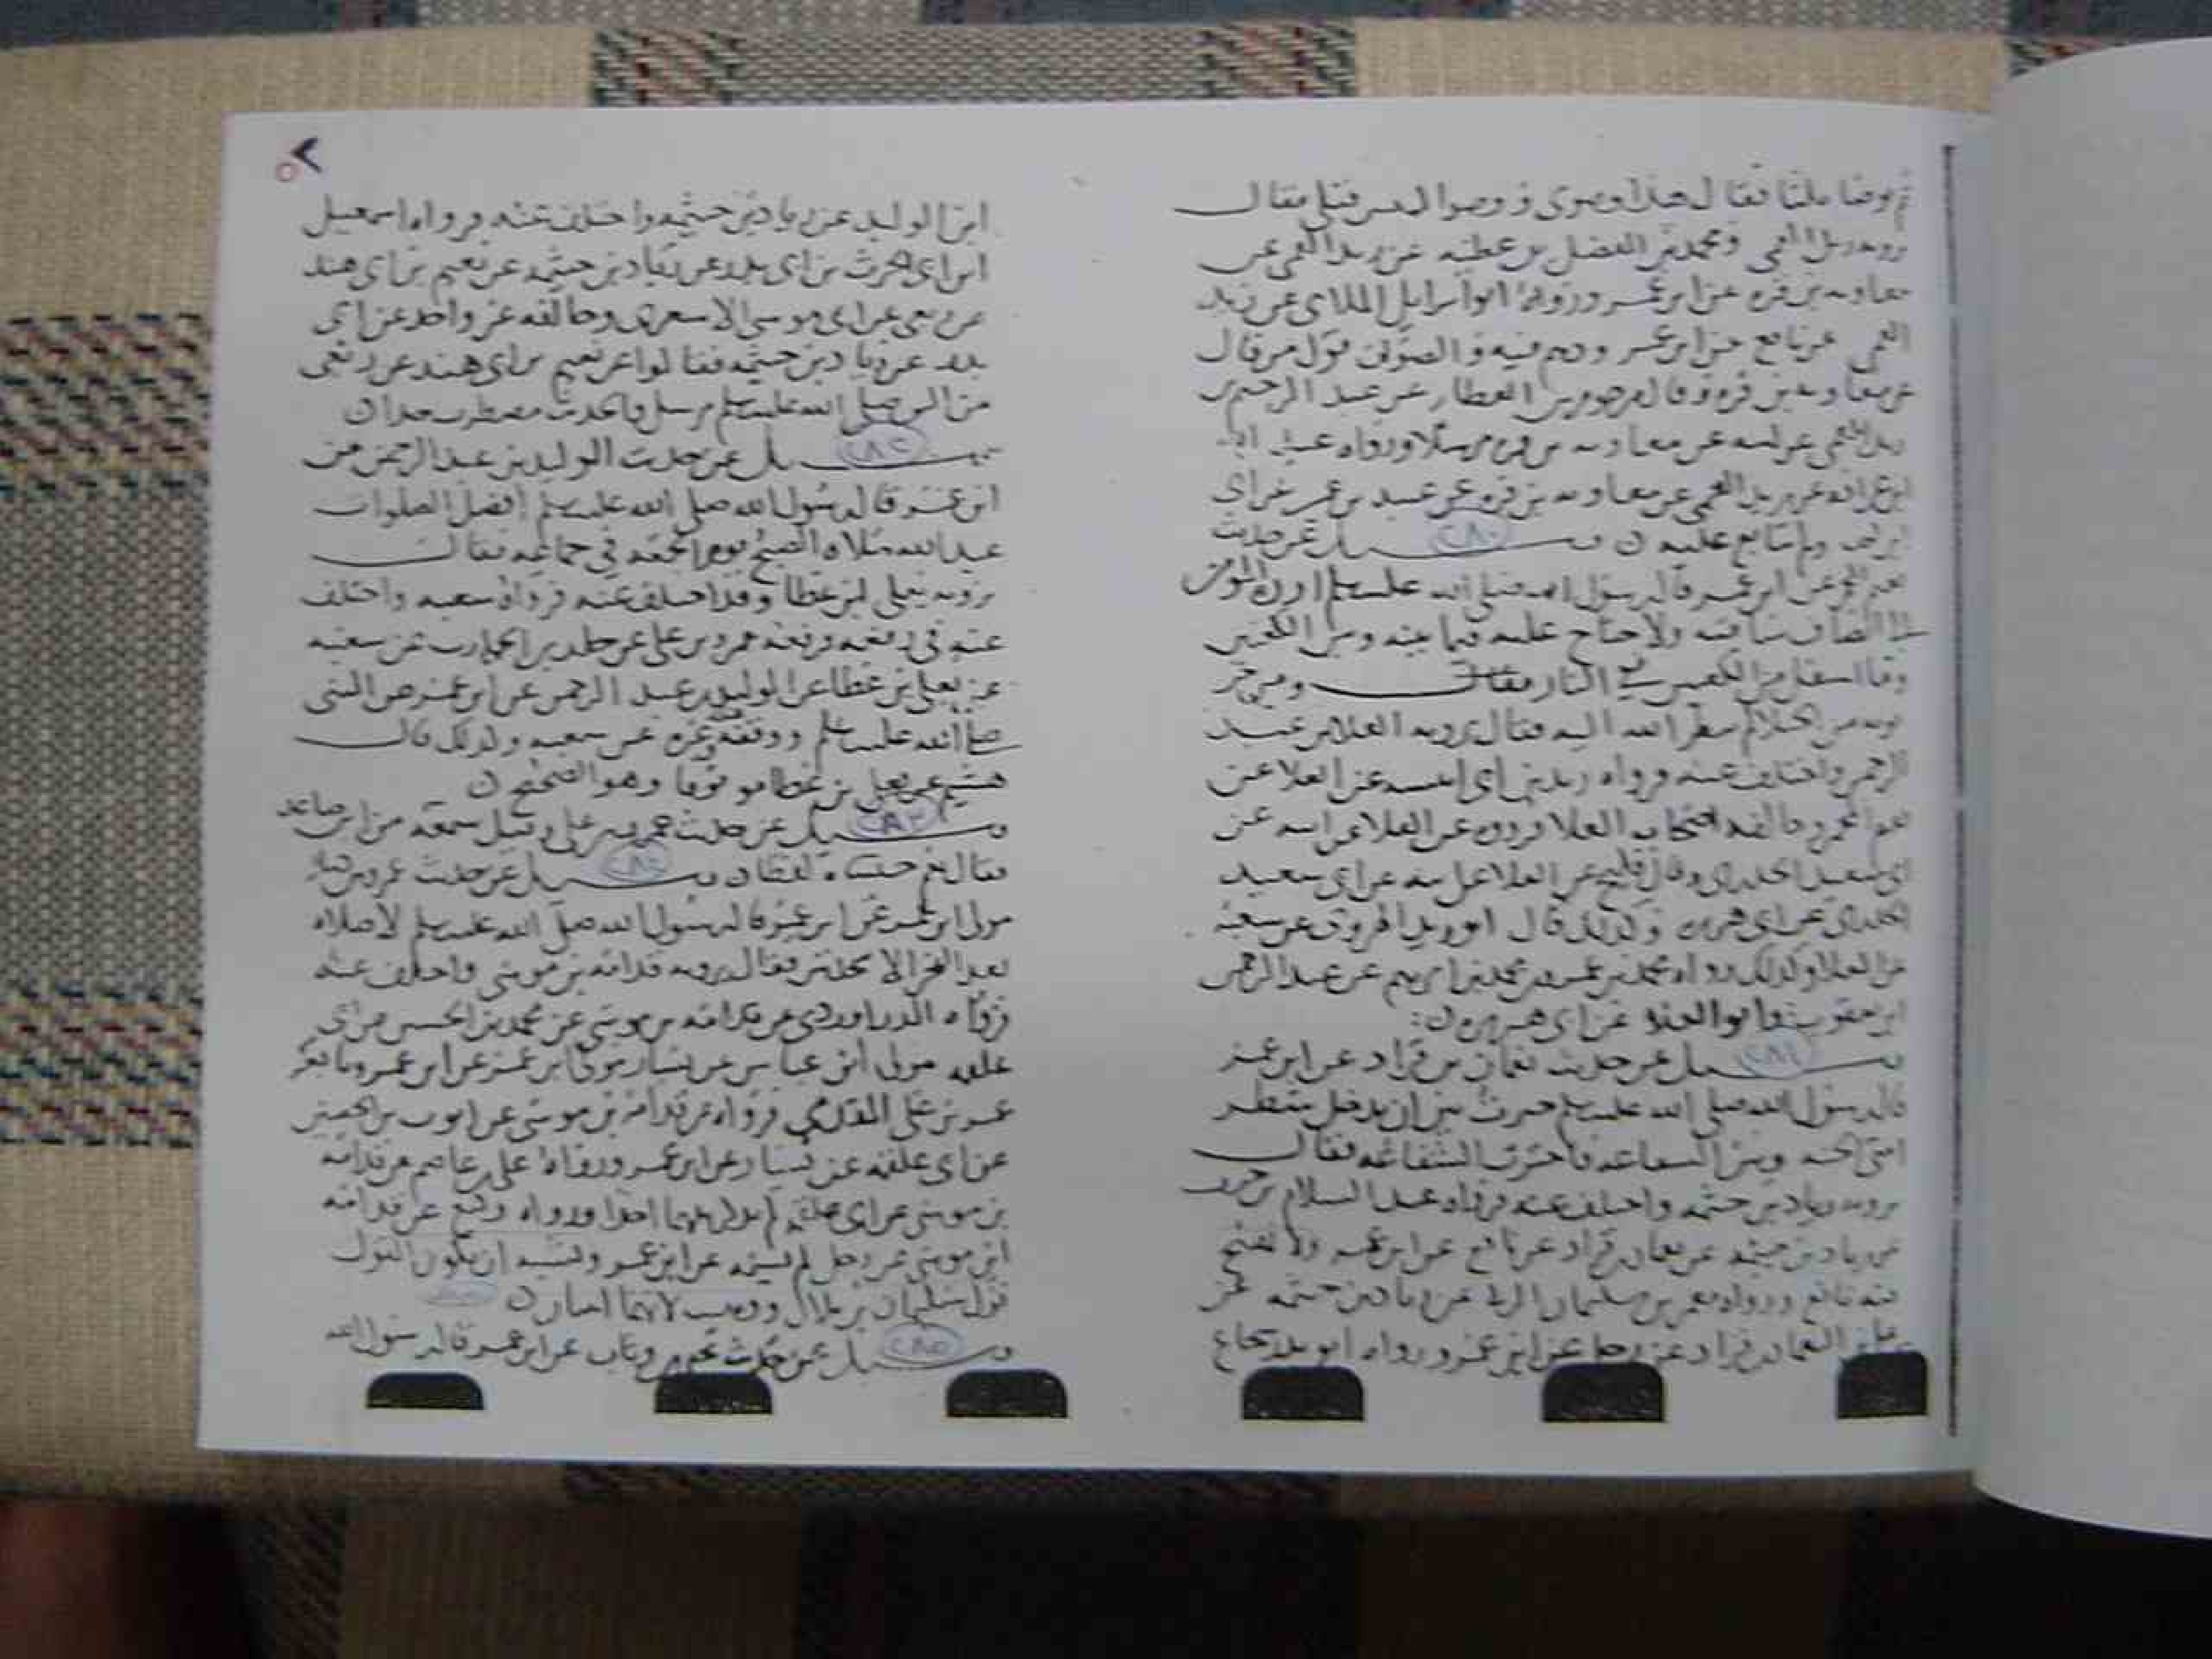 ثم توضا ثلثا فقال هذا وضوى ووضوا النبيين قبلي فقال
يرويه زيد العمي ومحمد بن الفضل بن عطيه عن زيد العمي عن
معاويه بن قره عن ابن عمر ورواه ابو اسرايل الملاى عن زيد
العمي عن نافع عن ابن عمر ووهم فيه والصواب قول من قال
عن معاويه بن قره وقال مرحوم بن العطار عن عبد الرحيم بن
زيد العمي عن ابيه عن معاويه بن قره مرسلا ورواه عبد الله
ابن عرادة عن زيد العمي عن معاويه بن قره عن عبيد بن عمير عن ابى
ابن كعب ولم يتابع عليه ن وسيل عن حديث ٢٨٠
نعيم المجمر عن ابن عمر قال رسول الله صلى الله عليه وسلم ازرة المؤمن
الى انصاف ساقيه ولا جناح عليه فيما بينه وبين الكعبين
وما اسفل من الكعبين في النار فقال ومن جر
ثوبه من الخيلا لم ينظر الله اليه فقال يرويه العلا بن عبد
الرحمن واختلف عنه فرواه زيد بن ابى انيسه عن العلا عن
نعيم المجمر وخالفه اصحاب العلا فرووه عن العلا عن ابيه عن
ابى سعيد الخدرى وقال فليح عن العلا عن ابيه عن ابى سعيد
الخدرى عن ابى هريره وكذلك قال ابو زيد الهروى عن شعبه
عن العلا وكذلك رواه محمد بن عمرو عن محمد بن ابرهيم عن عبد الرحمن
ابن يعقوب وابو العلا عن ابى هريره ن
وسيل عن حديث نعمان بن قراد عن ابن عمر ٢٨١
قال رسول الله صلى الله عليه وسلم خيرت بين ان يدخل شطر
امتى الجنه وبين الشفاعه فاخترت الشفاعه فقال
يرويه زياد بن خيثمه واختلف عنه فرواه عبد السلام بن حرب
عن زياد بن خيثمه عن نعمان بن قراد عن نافع عن ابن عمر ولا يصح
فيه نافع ورواه معمر بن سليمان الرقي عن زياد بن خيثمه عن
على بن النعمان بن قراد عن رجل عن ابن عمر ورواه ابو بدر شجاع
ابن الوليد عن زياد بن خيثمه واختلف عنه فرواه اسمعيل
ابن ابى الحرث عن ابى بدر عن زياد بن خيثمه عن نعيم بن ابى هند
عن ربعي عن ابى موسى الاشعرى وخالفه غير واحد عن ابى
بدر عن زياد بن خيثمه فقالوا عن نعيم بن ابى هند عن ربعي
عن النبي صلى الله عليه وسلم مرسل والحديث مضطرب جدا ن
وسيل عن حديث الوليد بن عبد الرحمن عن ٢٨٢
ابن عمر قال رسول الله صلى الله عليه وسلم افضل الصلوات
عند الله صلاه الصبح يوم الجمعه في جماعه فقال
يرويه يعلى بن عطا وقد اختلف عنه فرواه شعبه واختلف
عنه في رفعه فرفعه عمرو بن على عن خلد بن الحارث عن شعبه
عن يعلى بن عطا عن الوليد بن عبد الرحمن عن ابن عمر عن النبى
صلى الله عليه وسلم ووقفه غيره عن شعبه وكذلك قال
هشيم عن يعلى بن عطا موقوفا وهو الصحيح ن
وسيل عن حديث على قيل سمعته من ابن صاعد ٢٨٣
فقال نعم وسيل عن حديث ٢٨٤
مولى ابن عمر عن ابن عمر قال رسول الله صلى الله عليه وسلم لا صلاه
بعد الفجر الا سجدتين فقال يرويه قدامه بن موسى واختلف عنه
فرواه الدراوردى عن قدامه بن موسى عن محمد بن الحسين عن ابى
علقمه مولى ابن عباس عن يسار مولى ابن عمر عن ابن عمر وتابعه
عمر بن على المقدمي فرواه عن قدامه بن موسى عن ايوب بن الحصين
عن ابى علقمه عن يسار عن ابن عمر ورواه على بن عاصم عن قدامه
بن موسى عن ابى علقمه لم يذكر بينهما احدا ورواه وكيع عن قدامه
ابن موسى عن رجل لم يسمه عن ابن عمر ويشبه ان يكون القول
قول سليمان بن بلال ووهيب لانهما ن
وسيل عن حديث يحيى بن وثاب عن ابن عمر قال رسول الله ٢٨٥